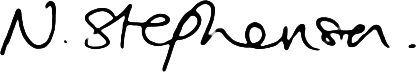 N. Stephenson.